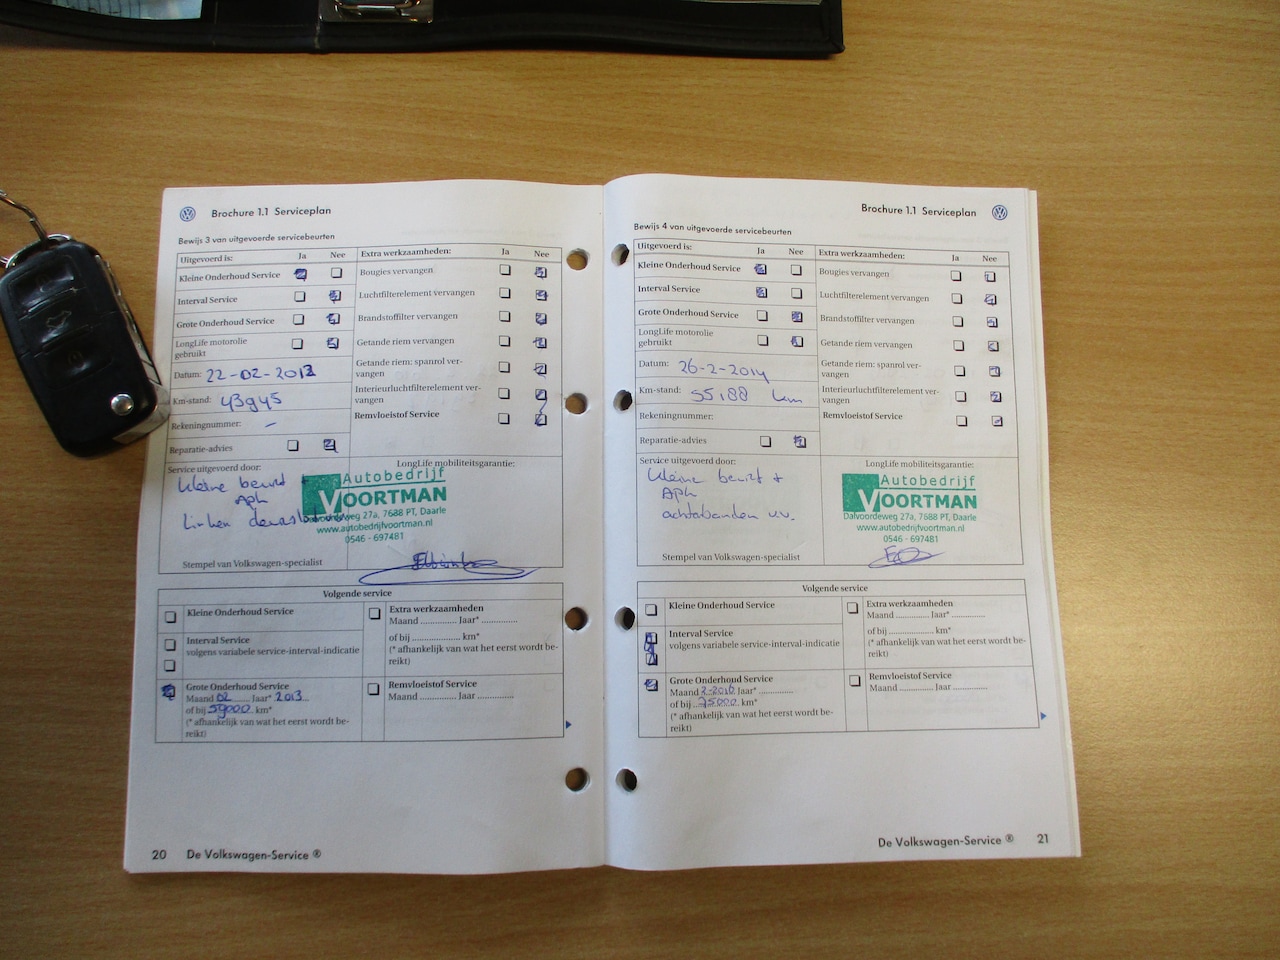 Brochure 1.1 Serviceplan
Bewijs 3 van uitgevoerde servicebeurten
Uitgevoerd is: Ja Nee
Kleine Onderhoud Service
Interval Service
Grote Onderhoud Service
LongLife motorolie
gebruikt
Datum: 22-02-2013
Km-stand: 43945
Rekeningnummer: -
Reparatie-advies
Extra werkzaamheden: Ja Nee
Bougies vervangen
Luchtfilterelement vervangen
Brandstoffilter vervangen
Getande riem vervangen
Getande riem: spanrol ver-
vangen
Interieurluchtfilterelement ver-
vangen
Remvloeistof Service
Service uitgevoerd door:
Kleine beurt +
APK
Linker
LongLife mobiliteitsgarantie:
Autobedrijf
VOORTMAN
Dalvoordeweg 27a, 7688 PT, Daarle
www.autobedrijfvoortman.nl
0546 - 697481
Stempel van Volkswagen-specialist
Volgende service
Kleine Onderhoud Service
Interval Service
volgens variabele service-interval-indicatie
Grote Onderhoud Service
Maand 02 Jaar* 2013
of bij 59000 km*
(* afhankelijk van wat het eerst wordt be-
reikt)
Extra werkzaamheden
Maand ............ Jaar* .............
of bij .................. km*
(* afhankelijk van wat het eerst wordt be-
reikt)
Remvloeistof Service
Maand ............ Jaar .............
20 De Volkswagen-Service ®
Brochure 1.1 Serviceplan
Bewijs 4 van uitgevoerde servicebeurten
Uitgevoerd is: Ja Nee
Kleine Onderhoud Service
Interval Service
Grote Onderhoud Service
LongLife motorolie
gebruikt
Datum: 26-2-2014
Km-stand: 55188 km
Rekeningnummer:
Reparatie-advies
Extra werkzaamheden: Ja Nee
Bougies vervangen
Luchtfilterelement vervangen
Brandstoffilter vervangen
Getande riem vervangen
Getande riem: spanrol ver-
vangen
Interieurluchtfilterelement ver-
vangen
Remvloeistof Service
Service uitgevoerd door:
Kleine beurt +
APK
achterbanden v.v.
LongLife mobiliteitsgarantie:
Autobedrijf
VOORTMAN
Dalvoordeweg 27a, 7688 PT, Daarle
www.autobedrijfvoortman.nl
0546 - 697481
Stempel van Volkswagen-specialist
Volgende service
Kleine Onderhoud Service
Interval Service
volgens variabele service-interval-indicatie
Grote Onderhoud Service
Maand 2-2016 Jaar* .............
of bij 75000 km*
(* afhankelijk van wat het eerst wordt be-
reikt)
Extra werkzaamheden
Maand ............ Jaar* .............
of bij .................. km*
(* afhankelijk van wat het eerst wordt be-
reikt)
Remvloeistof Service
Maand ............ Jaar .............
De Volkswagen-Service ® 21